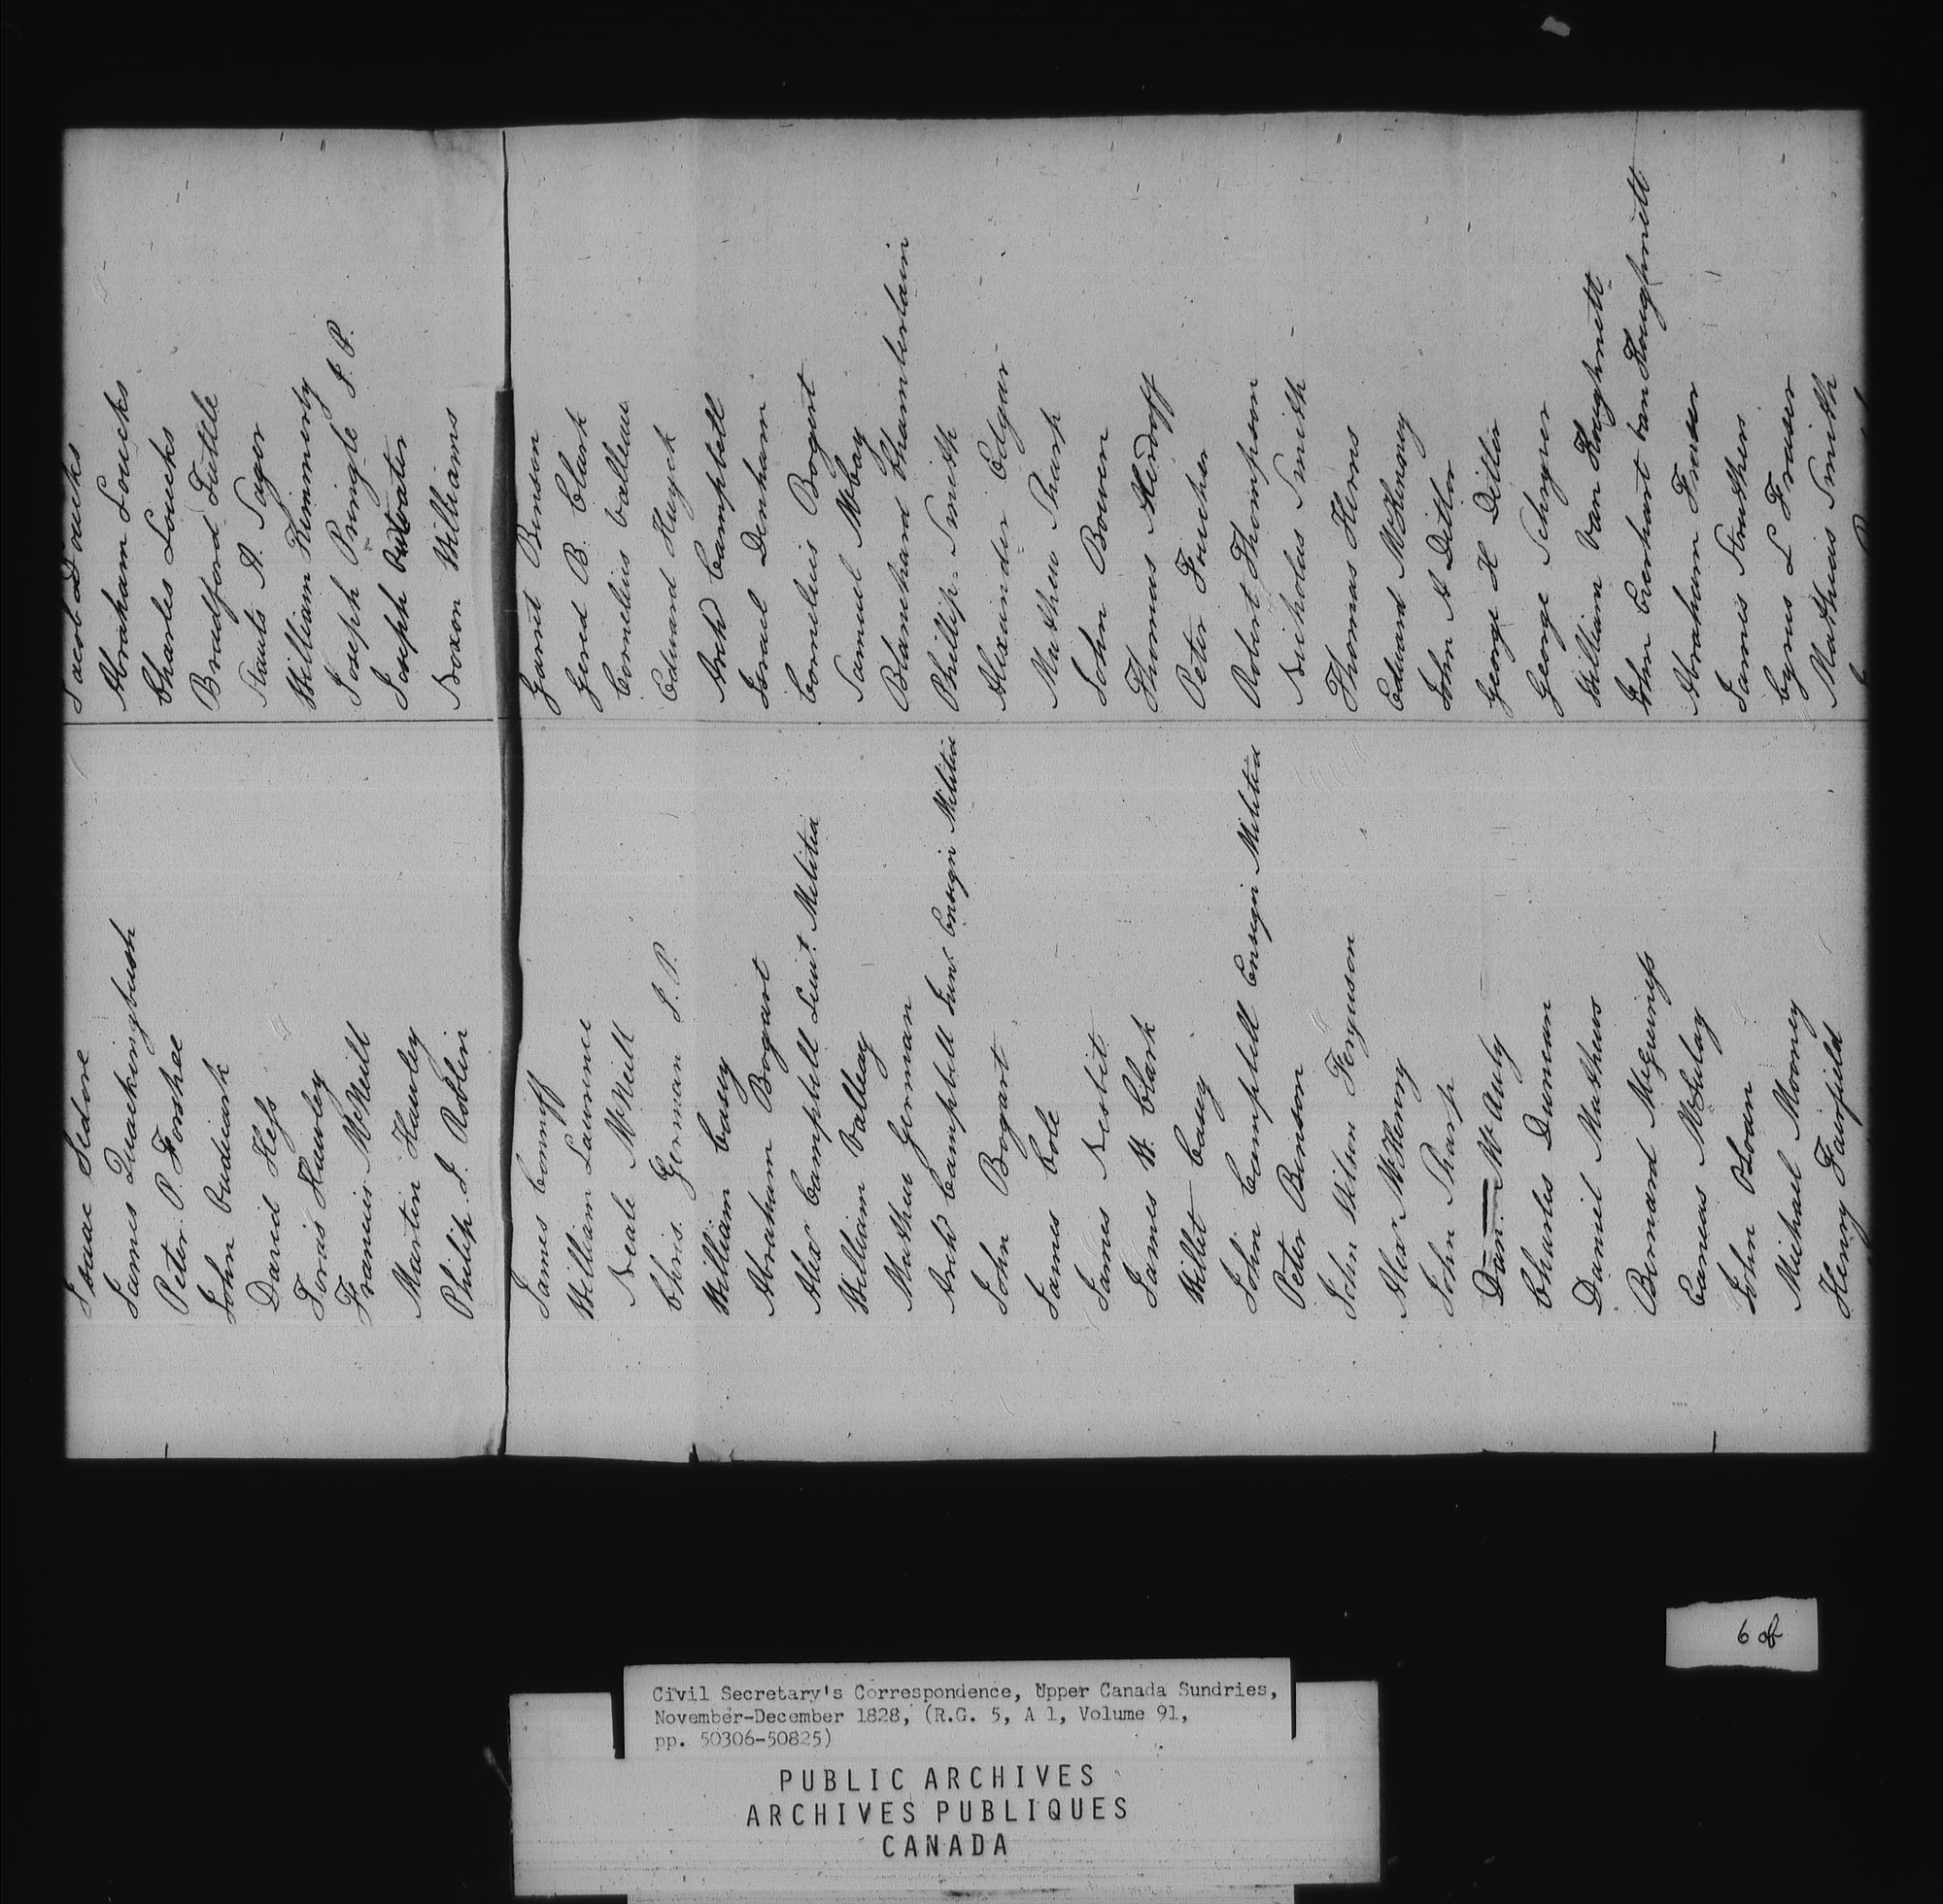 Isaac Sedore
James Quackingbush
Peter P. Forshee
John Cudwark
David Hess
Toras Hawley
Francis McNeill
Martin Hawley
Philip J. Roblin
James Connuff
William Laurence
Neale McNeill
Chris. German J. P.
William Casey
Abraham Bogart
Alex Campbell Lieut. Militia
William Valleay
Mathew German
Archd Campbell Junr. Ensign Militia
John Bogart
James Cole
James Nesbit
James W. Clark
Willet Casey
John Campbell Ensign Militia
Peter Benson
John Wilson Ferguson
Alex McHenry
John Sharp
Dan. McAuly
Charles Duncan
Daniel Mathews
Bernard McGuiness
Eaneas McCulay
John Sloan
Michael Mooney
Henry Fairfield
Jacob Loucks
Abraham Loucks
Charles Loucks
Bradford Tuttle
Stauts A. Sager
William Kimmerly
Joseph Pringle J. P.
Joseph
Noxon Williams
Garret Benson
Gered B. Clark
Cornelius Valleau
Edward Huyck
Archd Campbell
Israel Denham
Cornelius Bogert
Samuel McCay
Blanchard Chamberlain
Phillip Smith
Alexander Edgar
Mathew Sharp
John Bowen
Thomas Merdoff
Peter Foucher
Robert Thompson
Nicholas Smith
Thomas Herns
Edward McKenny
John A Ditlor
George H Ditlor
George Schryver
William van Koughnett
John Everhart van Koughnett
Abraham Fraser
James Struthers
Cyrus L Fraser
Mathias Smith
6 of
Civil Secretary's Correspondence, Upper Canada Sundries,
November-December 1828, (R.G. 5, A 1, Volume 91,
pp. 50306-50825)
PUBLIC ARCHIVES
ARCHIVES PUBLIQUES
CANADA